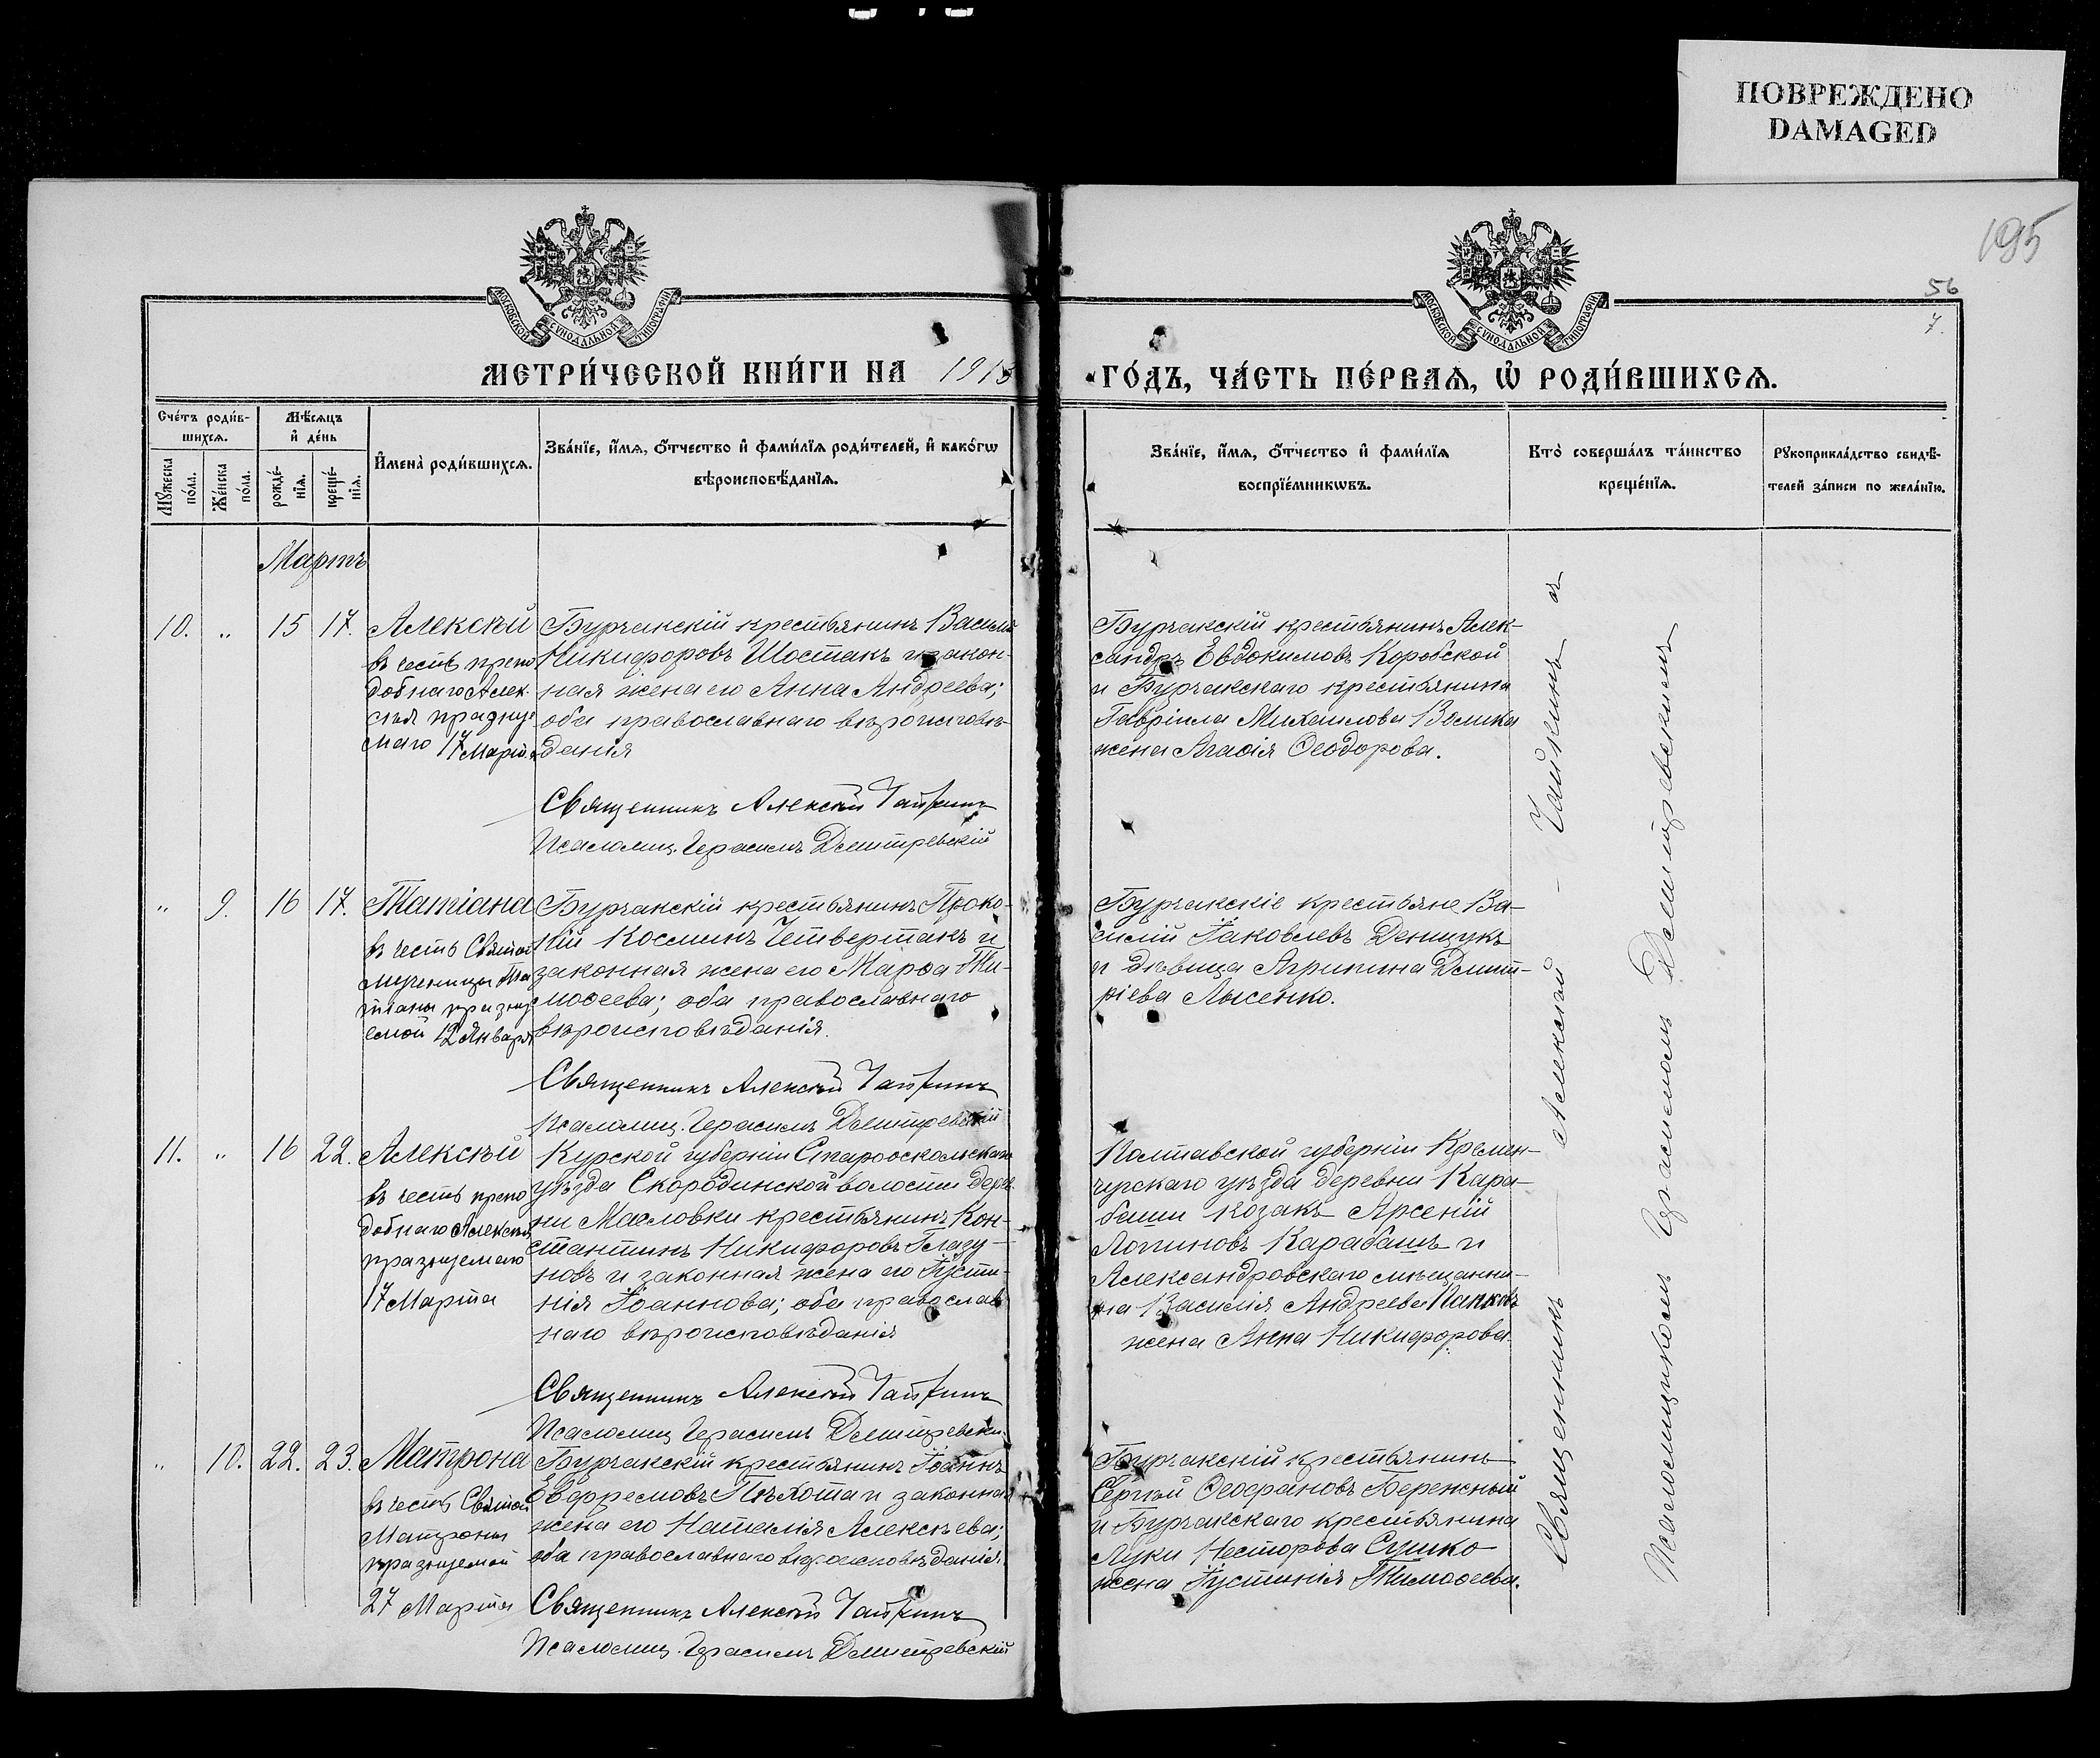 ПОВРЕЖДЕНО
DAMAGED
195
56
7.
МОСКОВСКОЙ СѴНОДАЛЬНОЙ ТИПОГРАФІИ
МОСКОВСКОЙ СѴНОДАЛЬНОЙ ТИПОГРАФІИ
МЕТРИ́ЧЕСКОЙ КНИ́ГИ НА 1913
ГО́ДЪ, ЧА́СТЬ ПЕ́РВАѦ, Ѽ РОДИ́ВШИХСѦ.
Сче́тъ роди́в-
шихсѧ.
Мꙋжеска по́ла.
Же́нска по́ла.
Мѣ́сѧцъ
и҆ де́нь
рожде́-
нїѧ.
креще́-
нїѧ.
И҆мена̀ роди́вшихсѧ.
Зва́нїе, и҆́мѧ, ѻ҆́тчество и҆ фами́лїѧ роди́телей, и҆ како́гѡ
вѣроисповѣ́данїѧ.
Зва́нїе, и҆́мѧ, ѻ҆́тчество и҆ фами́лїѧ
воспрїе́мникѡвъ.
Кто̀ соверша́лъ та́инство
креще́нїѧ.
Рꙋкоприкла́дство свидѣ́-
телей за́писи по жела́нїю.
Мартъ
10. „ 15 17. Алексѣй
въ честь препо
добнаго Алек-
сѣя празднуе
маго 17 Марта
Бурчакскій крестьянинъ Василій
Никифоровъ Шостакъ и закон-
ная жена его Анна Андреева;
оба православнаго вѣроисповѣ-
данія
Священникъ Алексѣй Чайкинъ
Псаломщ. Герасимъ Демитревскій
Бурчакскій крестьянинъ Алек-
сандръ Евдокимовъ Коробской
и Бурчакскаго крестьянина
Гавріила Михаилова Велика
жена Агаѳія Ѳеодорова.
„ 9. 16 17. Татіана
въ честь Святой
мученицы Та
тіаны празну
емой 12 Января
Бурчакскій крестьянинъ Проко-
пій Косминъ Четвертакъ и
законная жена его Марѳа Ти-
моѳеева; оба православнаго
вѣроисповѣданія.
Священникъ Алексѣй Чайкинъ
Псаломщ. Герасимъ Демитревскій
Бурчакскіе крестьяне Ва-
силій Іаковлевъ Денщукъ
и дѣвица Агрипина Димит-
ріева Лысенко.
11. „ 16 22. Алексѣй
въ честь препо
добнаго Алексѣя
празнуемаго
17 Марта
Курской губерніи Старооскольскаго
уѣзда Скородинской волости дерев
ни Масловки крестьянинъ Кон-
стантинъ Никифоровъ Глазу-
новъ и законная жена его Іусти-
нія Іоаннова; оба православ
наго вѣроисповѣданія
Священникъ Алексѣй Чайкинъ
Псаломщ Герасимъ Демитревскій
Полтавской губерніи Кремен-
чугскаго уѣзда деревни Кара-
баши козакъ Арсеній
Логиновъ Карабашъ и
Александровскаго мѣщани-
на Василія Андреева
жена Анна Никифорова
„ 10. 22. 23. Матрона
въ честь Святой
Матроны
празнуемой
27 Марта
Бурчакскій крестьянинъ Іоаннъ
Евфремовъ Пѣхота и законная
жена его Наталія Алексѣева;
оба православнаго вѣроисповѣданія.
Священникъ Алексѣй Чайкинъ
Псаломщ. Герасимъ Демитревскій
Бурчакскій крестьянинъ
Сергій Ѳеофановъ Бережный
и Бурчакскаго крестьянина
Луки Несторова Сушко
жена Іустинія Тимоѳеева.
Священникъ — Алексѣй — Чайкинъ съ
Псаломщикомъ Герасимомъ Демитревскимъ